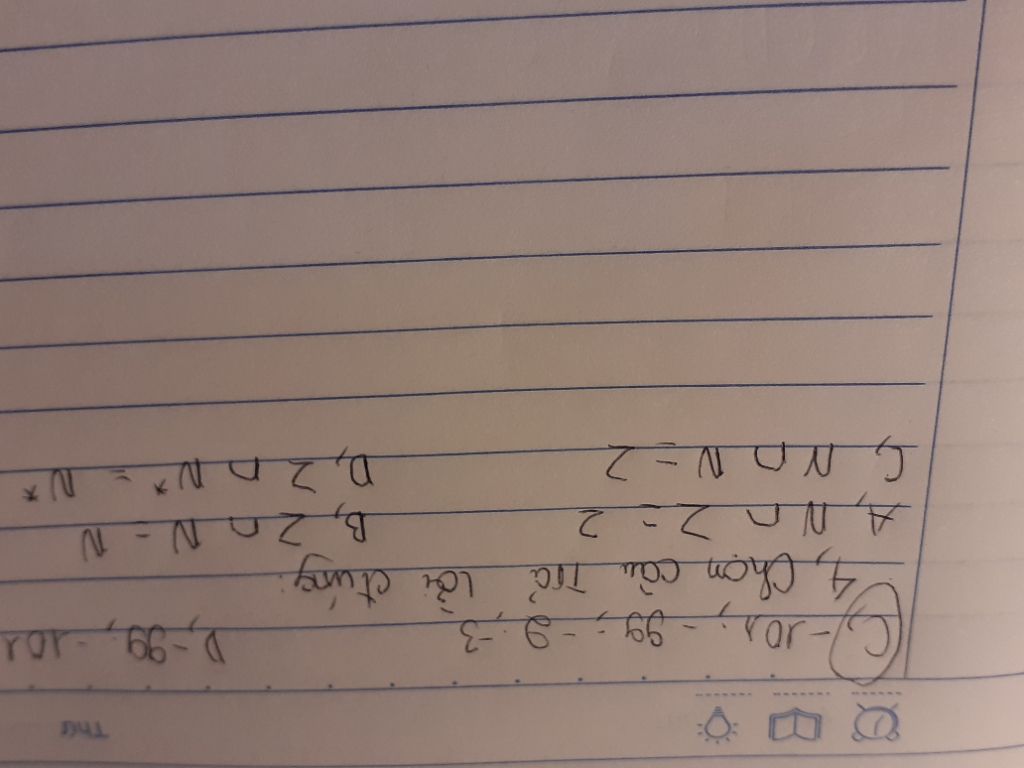 Thứ
C, -101; -99; -9; -3 D, -99; -101
4, Chọn câu trả lời đúng:
A, N ∩ Z = Z B, Z ∩ N = N
C, N ∩ N = Z D, Z ∩ N* = N*